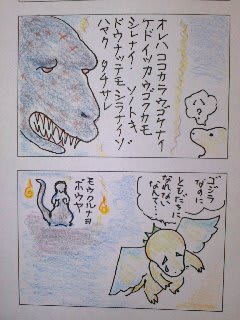 オレハココカラウゴカナイ
ケドイツカウゴクカモ
シレナイ・ソノトキ
ドウナッテモシラナイゾ
ハヤクタチサレ
へ?
ゴジラ
なのに
ともだちに
なれない
なんて…
モウクルナヨ
ボウヤ